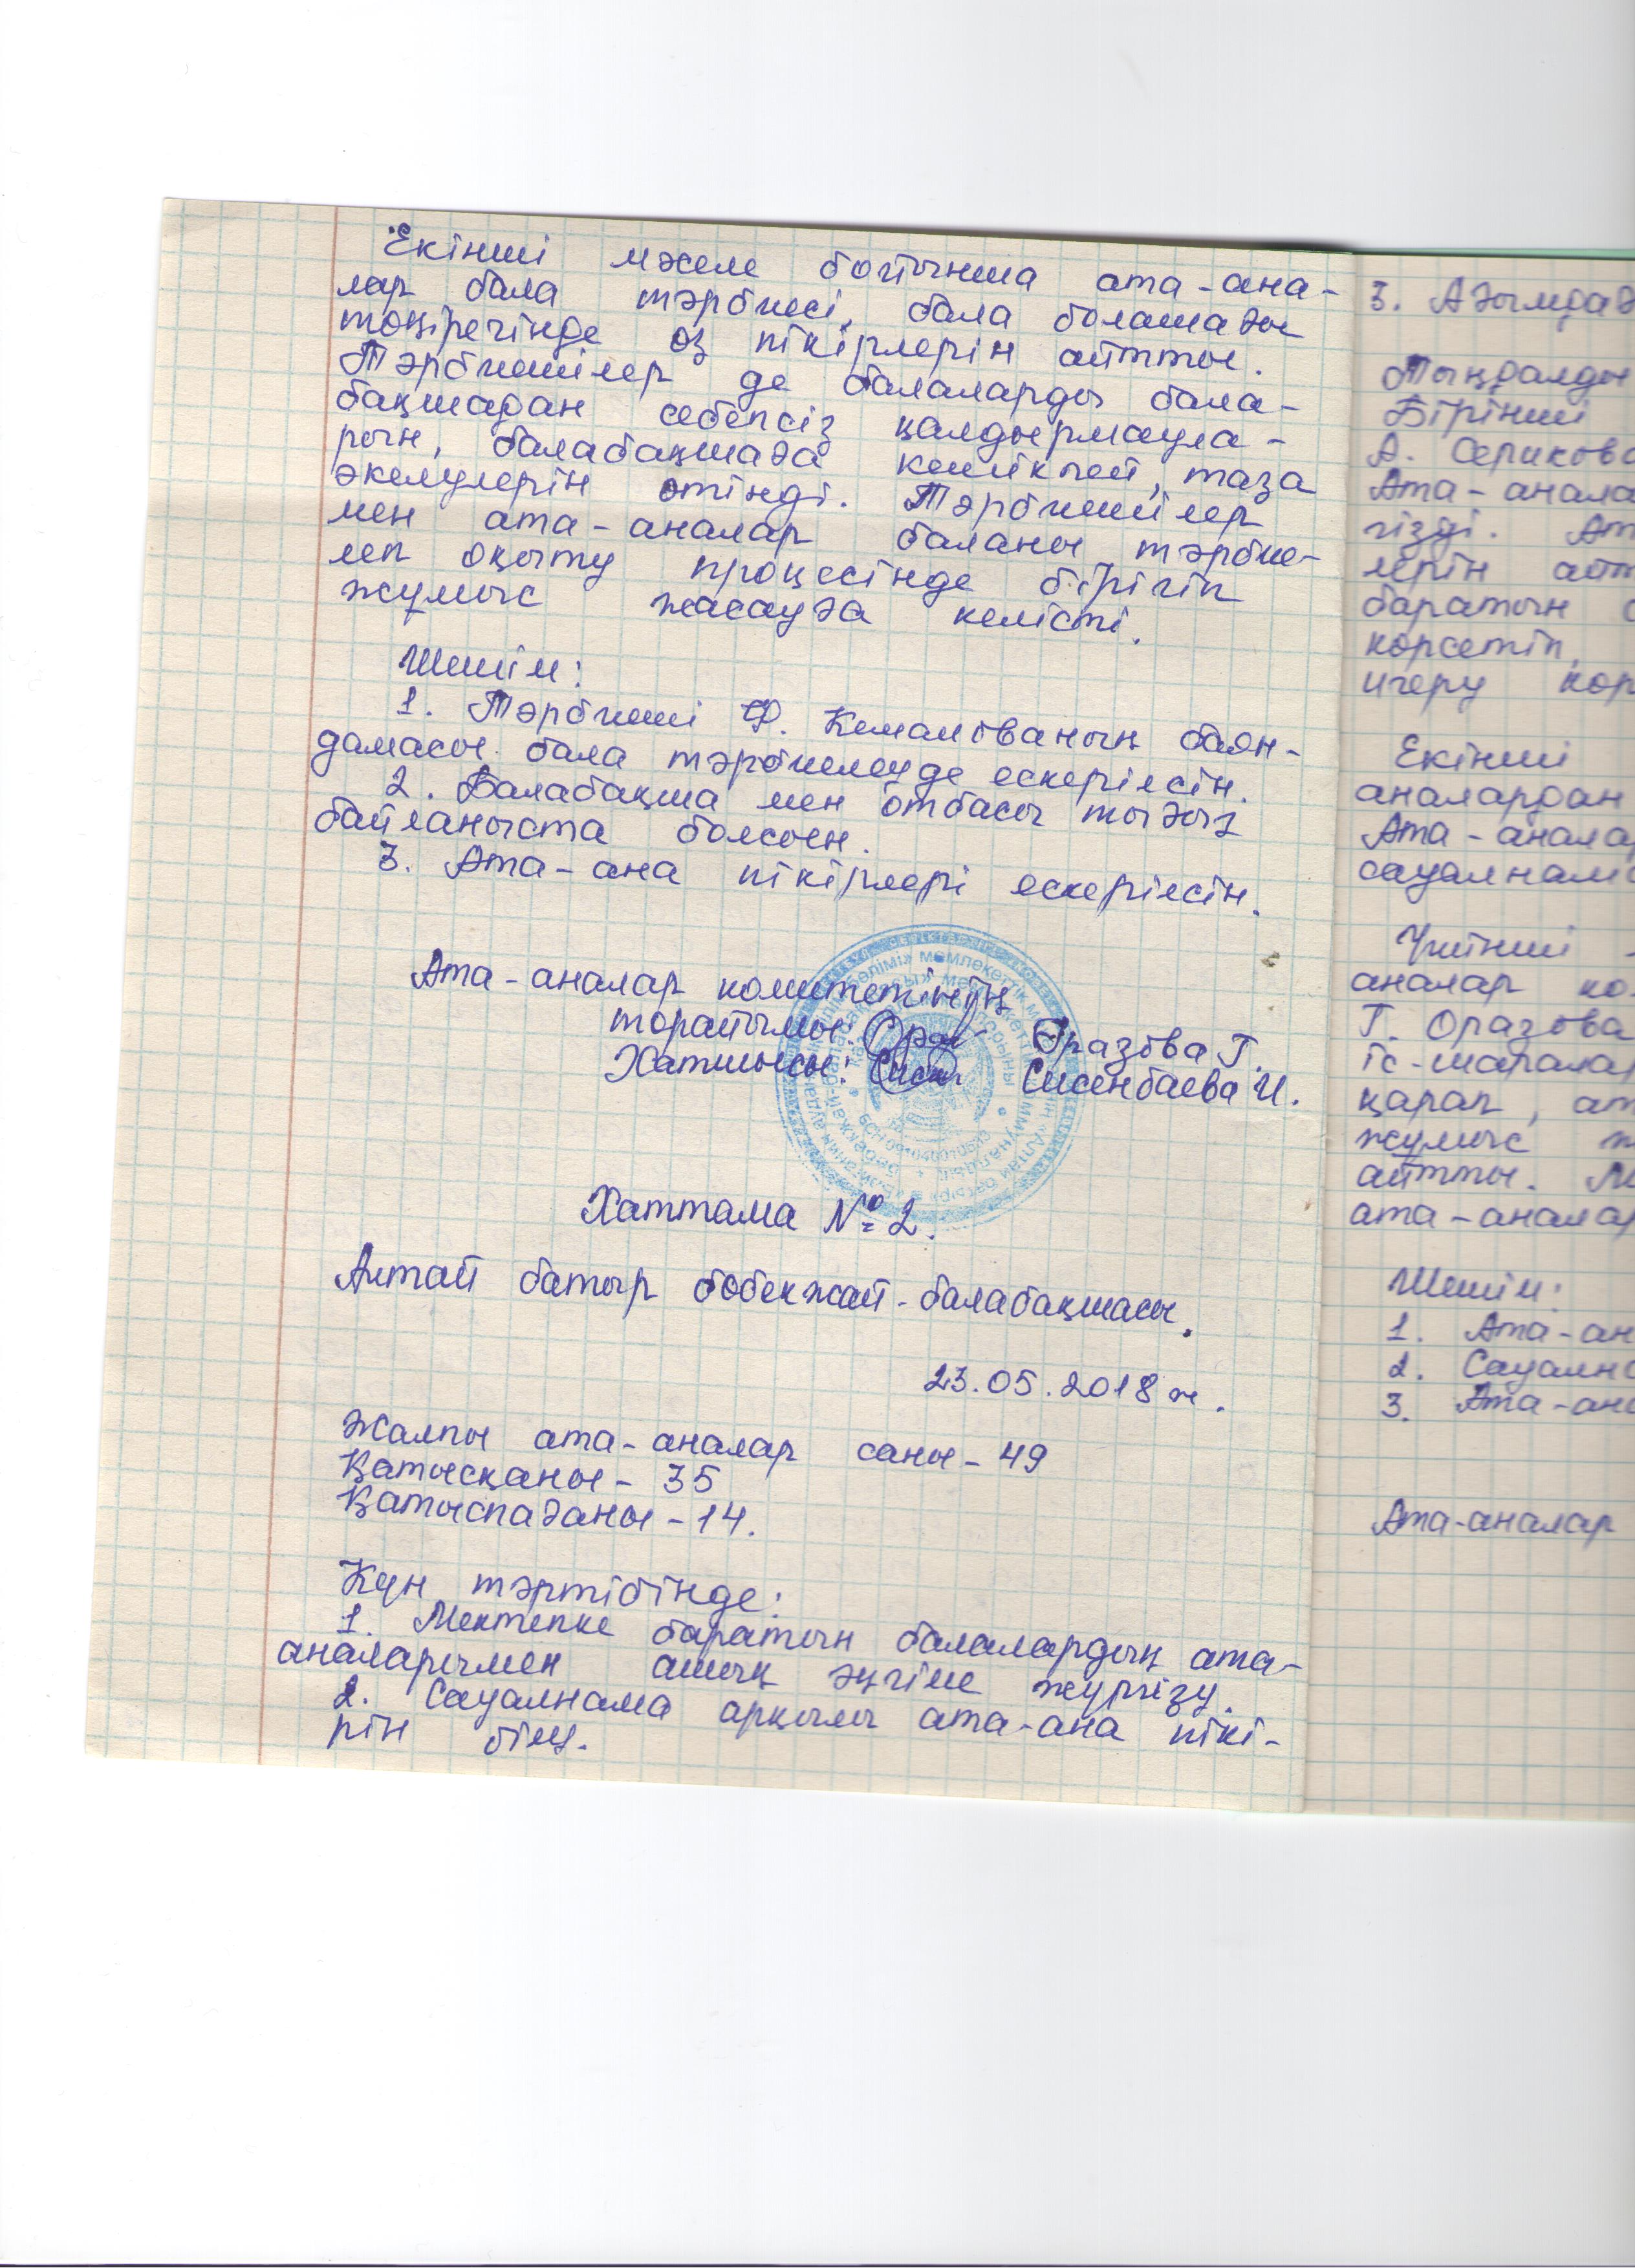 Екінші мәселе бойынша ата-ана-
лар бала тәрбиесі, бала болашағы
төңірегінде өз пікірлерін айтты.
Тәрбиешілер де балаларды бала-
бақшадан себепсіз қалдырмаула-
рын, балабақшаға кешікпей, таза
әкелулерін өтінді. Тәрбиешілер
мен ата-аналар баланы тәрбие-
леп оқыту процесінде бірігіп
жұмыс жасауға келісті.
Шешім:
1. Тәрбиеші Ф. Кемаловваның баян-
дамасы бала тәрбиелеуде ескерілсін.
2. Балабақша мен отбасы тығыз
байланыста болсын.
3. Ата-ана пікірлері ескерілсін.
Ата-аналар комитетінің
төрайымы: Оразова Г.
Хатшысы: Сисенбаева И.
Хаттама №2.
Алтай батыр бөбекжай-балабақшасы.
23.05.2018 ж.
Жалпы ата-аналар саны - 49
Қатысқаны - 35
Қатыспағаны - 14.
Күн тәртібінде:
1. Мектепке баратын балалардың ата-
аналарымен ашық әңгіме жүргізу.
2. Сауалнама арқылы ата-ана пікі-
рін білу.
3. Ағымдағ
Тыңдалды
Бірінші
А. Серикова
Ата-анала
гізді. Ат
лерін айт
баратын
көрсетіп,
игеру көр
Екінші
аналардан
Ата-анала
сауалнама
Үшінші -
аналар ко
Г. Оразова
іс-шарала
қарап, ат
жұмыс ж
айтты. М
ата-аналар
Шешім:
1. Ата-ан
2. Сауална
3. Ата-ан
Ата-аналар